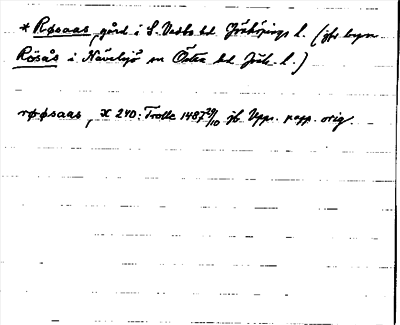 * Røsaas, gård i S. Vedbo hd Jönköpings l. (jfr byn
Rösås i Nävelsjö sn Östra hd Jönk. l.)
røøsaas, X 240: Trolle 1487 29/10 jb Upps. papp. orig.